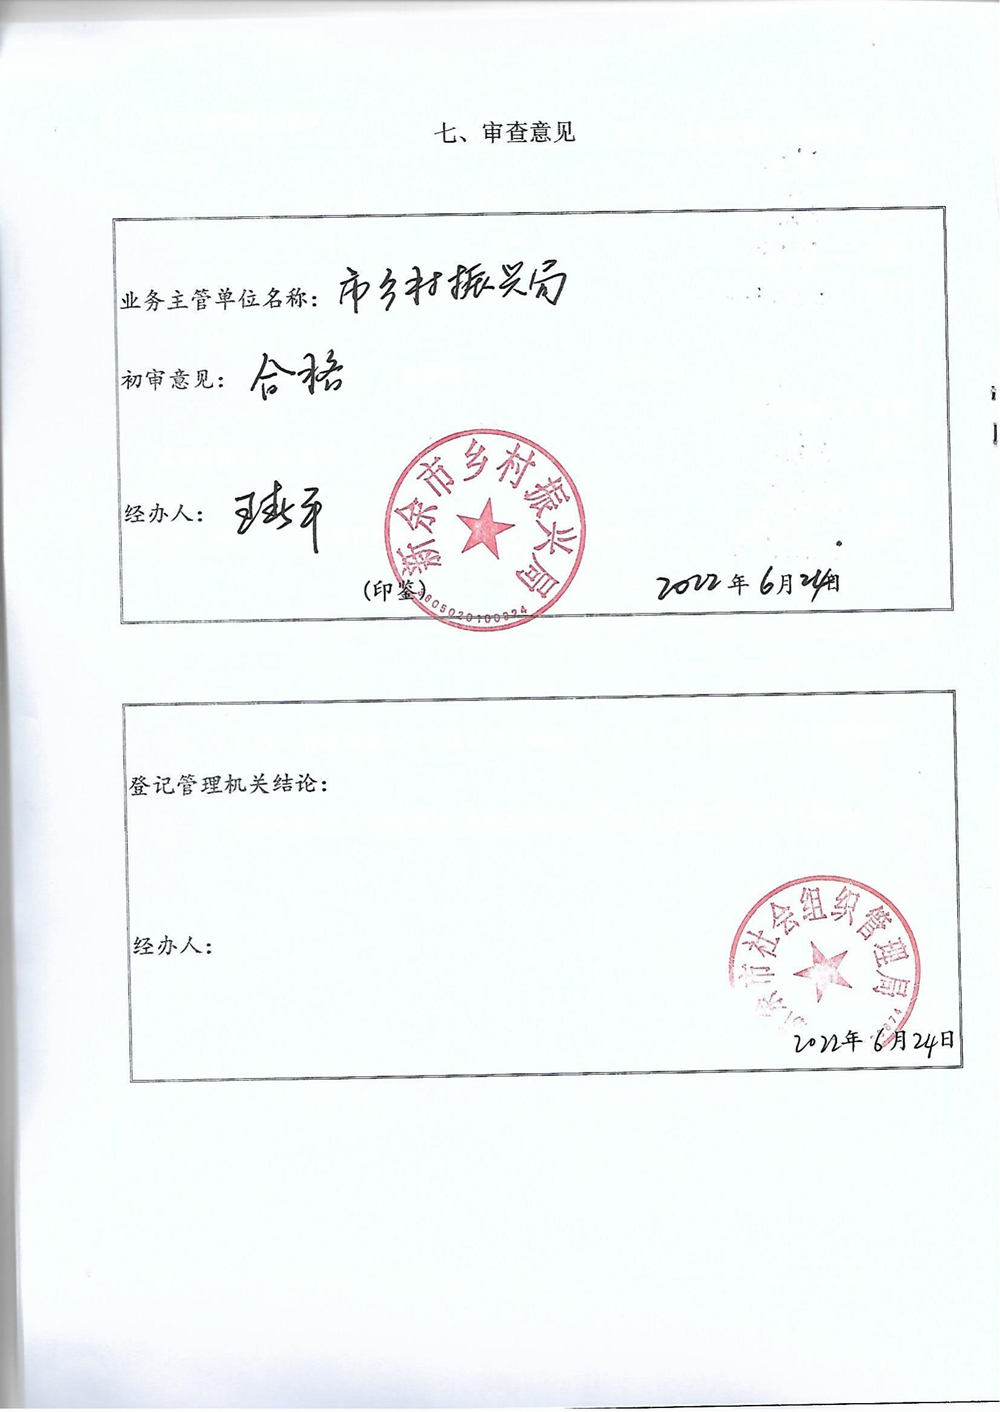 七、审查意见
业务主管单位名称：市乡村振兴局
初审意见：合格
经办人：
新余市乡村振兴局
(印鉴)
2022年6月24日
登记管理机关结论：
经办人：
余市社会组织管理局
2022年6月24日